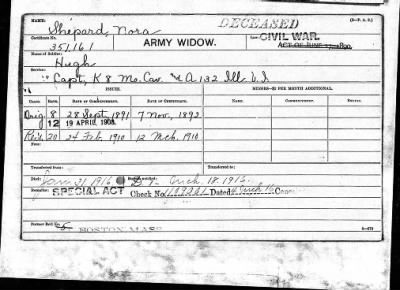 DECEASED
NAME:
(3—F. A. D.)
Shepard, Nora
Certificate No.
351161
ARMY WIDOW.
Law: CIVIL WAR.
ACT OF JUNE 27, 1890.
Name of Soldier:
Hugh
Service:
Capt. K 8 Mo. Cav. & A 132 Ill. V. I.
ISSUES.
MINORS—$2 PER MONTH ADDITIONAL.
CLASS. RATE. DATE OF COMMENCEMENT. DATE OF CERTIFICATE.
Orig 8 28 Sept. 1891 7 Nov. 1892
12 19 APRIL 1908.
20 24 Feb. 1910 12 Mch. 1910
Transferred from:
Transferred to:
Died: Jan. 31 1916
Mch. 18. 1916.
Remarks: SPECIAL ACT
Check No. Dated 4 Mch 16
Former Roll No.
BOSTON, MASS